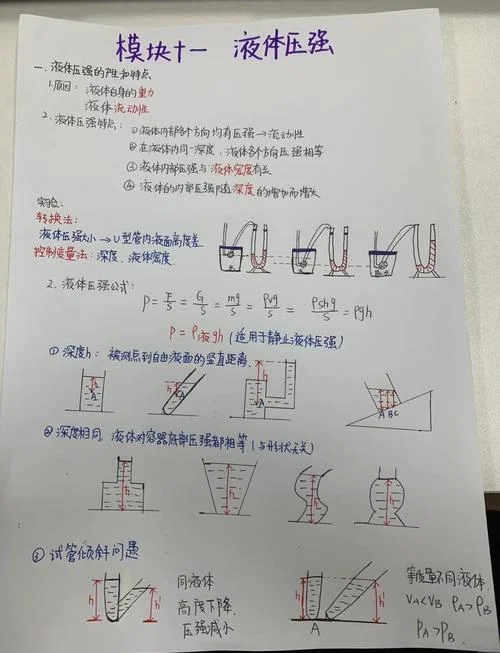 模块十一 液体压强
一、液体压强的产生和特点
1.原因: 液体自身的重力
液体流动性
2.液体压强特点: ①液体内部各个方向均有压强→流动性
②在液体内同一深度,液体各个方向压强相等
③液体内部压强与液体密度有关
④液体的内部压强随深度的增加而增大
实验:
转换法:
液体压强大小→U型管内液面高度差
控制变量法: 深度、液体密度
水 水
2.液体压强公式:
P = F/S = G/S = mg/S = ρVg/S = ρShg/S = ρgh
P = ρ液gh (适用于静止液体压强)
①深度h: 被测点到自由液面的竖直距离.
h A h A h A A B C
②深度相同, 液体对容器底部压强都相等 (与形状无关)
h h h h
③试管倾斜问题
h h' 同液体
高度下降
压强减小
h A h' 等质量不同液体
VA<VB ρA>ρB
PA>PB